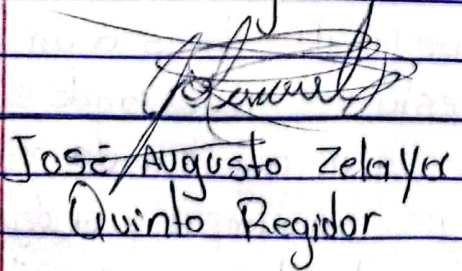 José Augusto Zelaya
Quinto Regidor